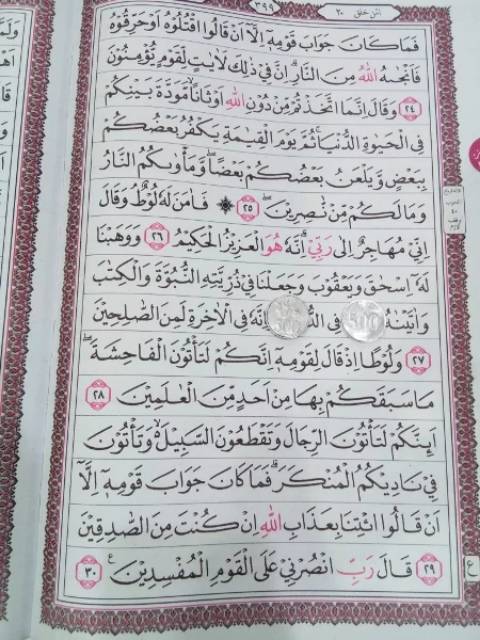 ٣٩٩
٢٠ امن خلق
فَمَا كَانَ جَوَابَ قَوْمِهٖٓ اِلَّآ اَنْ قَالُوا اقْتُلُوْهُ اَوْ حَرِّقُوْهُ
فَاَنْجٰىهُ اللّٰهُ مِنَ النَّارِۗ اِنَّ فِيْ ذٰلِكَ لَاٰيٰتٍ لِّقَوْمٍ يُّؤْمِنُوْنَ
٢٤ وَقَالَ اِنَّمَا اتَّخَذْتُمْ مِّنْ دُوْنِ اللّٰهِ اَوْثَانًاۙ مَّوَدَّةَ بَيْنِكُمْ
فِى الْحَيٰوةِ الدُّنْيَا ۚ ثُمَّ يَوْمَ الْقِيٰمَةِ يَكْفُرُ بَعْضُكُمْ
بِبَعْضٍ وَّيَلْعَنُ بَعْضُكُمْ بَعْضًا ۖ وَّمَأْوٰىكُمُ النَّارُ
وَمَا لَكُمْ مِّنْ نّٰصِرِيْنَۖ ٢٥ ۞ فَاٰمَنَ لَهٗ لُوْطٌۘ وَقَالَ
اِنِّيْ مُهَاجِرٌ اِلٰى رَبِّيْ ۗ اِنَّهٗ هُوَ الْعَزِيْزُ الْحَكِيْمُ ٢٦ وَوَهَبْنَا
لَهٗٓ اِسْحٰقَ وَيَعْقُوْبَ وَجَعَلْنَا فِيْ ذُرِّيَّتِهِ النُّبُوَّةَ وَالْكِتٰبَ
وَاٰتَيْنٰهُ فِى الدُّ اِنَّهٗ فِى الْاٰخِرَةِ لَمِنَ الصّٰلِحِيْنَ
٢٧ وَلُوْطًا اِذْ قَالَ لِقَوْمِهٖٓ اِنَّكُمْ لَتَأْتُوْنَ الْفَاحِشَةَ ۖ
مَا سَبَقَكُمْ بِهَا مِنْ اَحَدٍ مِّنَ الْعٰلَمِيْنَ ٢٨
اَىِٕنَّكُمْ لَتَأْتُوْنَ الرِّجَالَ وَتَقْطَعُوْنَ السَّبِيْلَ ەۙ وَتَأْتُوْنَ
فِيْ نَادِيْكُمُ الْمُنْكَرَ ۗ فَمَا كَانَ جَوَابَ قَوْمِهٖٓ اِلَّآ
اَنْ قَالُوا ائْتِنَا بِعَذَابِ اللّٰهِ اِنْ كُنْتَ مِنَ الصّٰدِقِيْنَ
٢٩ قَالَ رَبِّ انْصُرْنِيْ عَلَى الْقَوْمِ الْمُفْسِدِيْنَ ࣖ ٣٠
500
ع